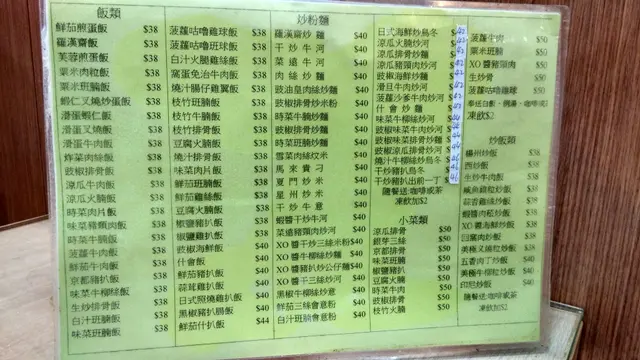 飯類
鮮茄煎蛋飯 $38
羅漢齋飯 $38
芙蓉煎蛋飯 $38
粟米肉粒飯 $38
粟米班腩飯 $38
蝦仁叉燒炒蛋飯 $38
滑蛋蝦仁飯 $38
滑蛋叉燒飯 $38
滑蛋牛肉飯 $38
炸菜肉絲飯 $38
豉椒排骨飯 $38
涼瓜牛肉飯 $38
涼瓜班腩飯 $38
時菜肉片飯 $38
味菜豬頸肉飯 $38
時菜牛腩飯 $38
菠蘿牛肉飯 $38
鮮茄牛肉飯 $38
京都豬扒飯 $38
味菜牛柳絲飯 $38
生炒排骨飯 $38
白汁班腩飯 $38
味菜班腩飯 $38
菠蘿咕嚕雞球飯 $38
菠蘿咕嚕班球飯 $38
白汁火腿雞絲飯 $38
窩蛋免治牛肉飯 $38
燒汁腸仔雞翼飯 $38
枝竹班腩飯 $38
枝竹牛腩飯 $38
枝竹排骨飯 $38
豆腐火腩飯 $38
燒汁排骨飯 $38
味菜肉片飯 $38
鮮茄班腩飯 $38
鮮茄雞絲飯 $38
豆腐班腩飯 $38
椒鹽豬扒飯 $38
椒鹽雞扒飯 $38
豉椒海鮮飯 $40
什會飯 $40
鮮茄豬扒飯 $40
蒜茸雞扒飯 $40
日式燒鰻雞扒飯 $40
黑椒豬扒腸飯 $40
鮮茄什扒飯 $44
炒粉麵
羅漢齋炒麵 $40
干炒牛河 $40
菜遠牛河 $40
肉絲炒麵 $40
豉油皇肉絲炒麵 $40
豉椒排骨炒米粉 $40
時菜牛腩炒麵 $40
時菜班腩炒麵 $40
雪菜肉絲炆米 $40
馬來貴刁 $40
夏門炒米 $40
星州炒米 $40
干炒牛意 $40
蝦醬干炒牛河 $40
菜遠豬頸肉炒河 $40
XO醬干炒三絲米粉 $40
XO醬牛柳絲炒麵 $40
XO醬豬扒炒公仔麵 $40
XO醬干三絲炒河 $40
黑椒牛柳絲炒意 $40
鮮茄三絲會意粉 $40
白汁班腩會意粉 $40
日式海鮮炒烏冬
涼瓜火腩炒河
涼瓜排骨炒麵
涼瓜豬頸肉炒河
豉椒海鮮炒麵
滑旦牛肉炒河
菠蘿沙爹牛肉炒河
味菜牛柳絲炒河
豉椒味菜牛肉炒河
豉椒味菜排骨炒麵
豉椒涼瓜排骨炒河
燒汁牛柳絲炒烏冬
干炒豬扒烏冬
干炒豬扒出前一丁
隨餐送:咖啡或茶
凍飲加$2
小菜類
涼瓜排骨 $50
銀芽三絲 $50
京都排骨 $50
味菜班腩 $50
椒鹽豬扒 $50
豆腐火腩 $50
時菜牛肉 $50
豉椒排骨 $50
枝竹火腩 $50
菠蘿生肉 $50
粟米班腩 $50
XO醬豬頸肉 $50
生炒骨 $50
菠蘿咕嚕雞球 $50
凍飲$2
炒飯類
揚州炒飯 $38
西炒飯 $38
生炒牛肉飯 $38
咸魚雞粒炒飯 $38
蒜香雞絲炒飯 $38
XO醬海鮮炒飯 $38
回窩肉炒飯 $38
美極叉雞粒炒飯 $38
五香肉丁炒飯 $40
美極牛柳粒炒飯 $40
印尼炒飯 $40
隨餐送:咖啡或茶
凍飲加$2